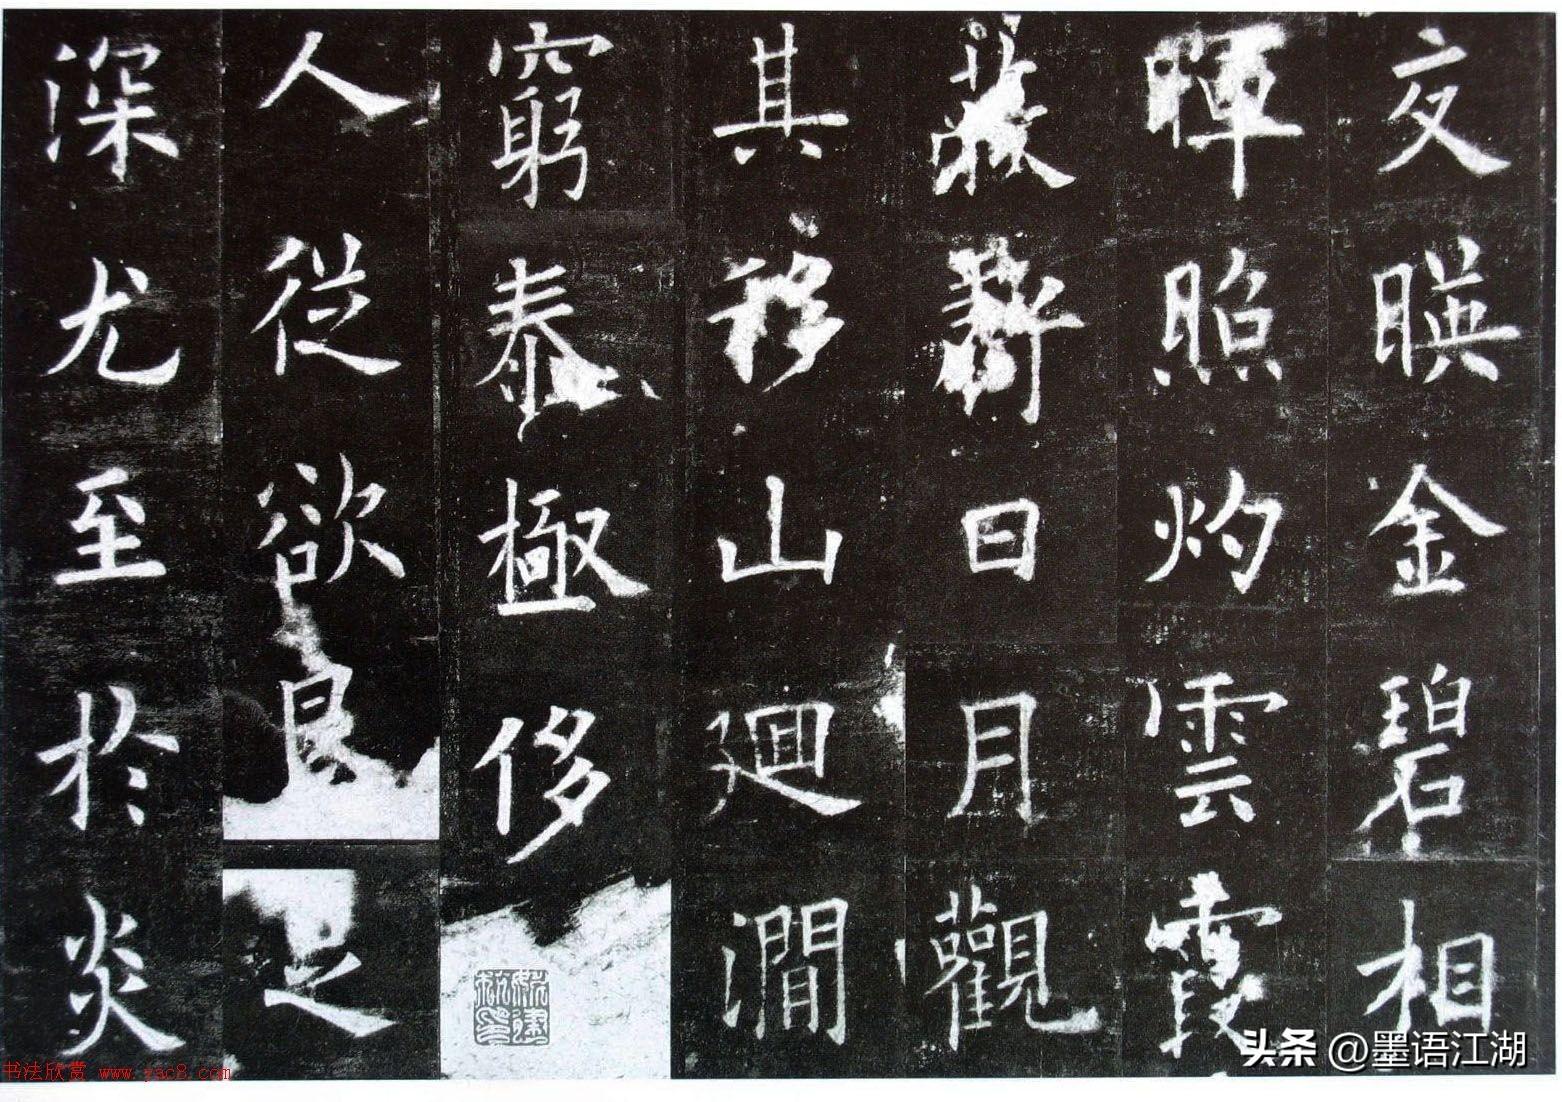 交暎金碧相
暉照灼雲霞
蔽虧日月觀
其移山廻澗
窮泰極侈
人從欲良足
深尤至於炎
书法欣赏 www.yac8.com
头条 @墨语江湖